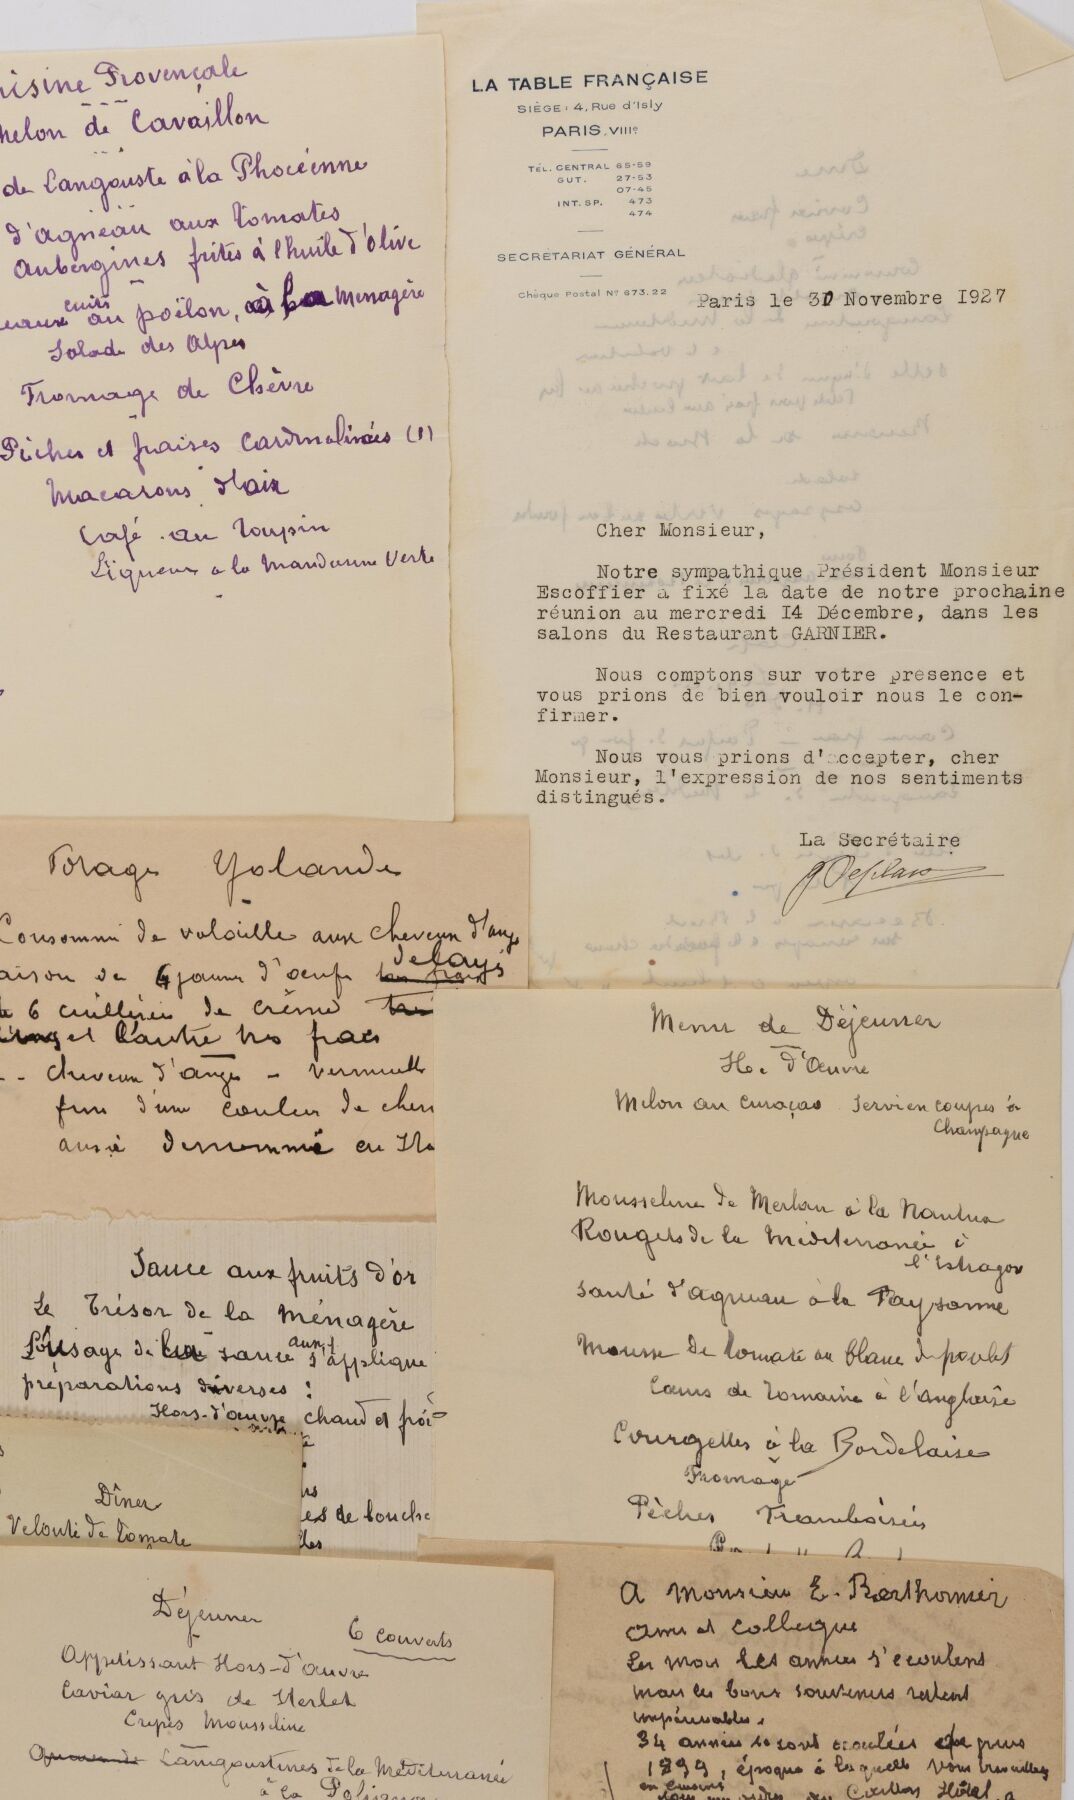 Provençale
de Cavaillon
de Langouste à la Phocéenne
d'agneau aux tomates
Aubergines frites à l'huile d'Olive
cuits
au poëlon, à la Menagère
Salade des Alpes
Fromage de Chèvre
Pêches et fraises Cardinalisées (1)
Macarons d'aix
Café au Toupin
Liqueur à la Mandarine Verte
LA TABLE FRANÇAISE
SIÈGE : 4, Rue d'Isly
PARIS, VIIIe
TÉL. CENTRAL 65-59
GUT. 27-53
07-45
INT. SP. 473
474
SECRÉTARIAT GÉNÉRAL
Chèque Postal N° 673.22
Paris le 30 Novembre 1927
Cher Monsieur,
Notre sympathique Président Monsieur
Escoffier a fixé la date de notre prochaine
réunion au mercredi 14 Décembre, dans les
salons du Restaurant GARNIER.
Nous comptons sur votre présence et
vous prions de bien vouloir nous le con-
firmer.
Nous vous prions d'accepter, cher
Monsieur, l'expression de nos sentiments
distingués.
La Secrétaire
Potage Yolande
Consommé de volaille aux cheveux d'ange
de 4 jaunes d'oeufs delayés
6 cuillerées de crême
et l'autre très frais
cheveux d'ange - vermicelle
fin d'une couleur de
aussi denommé en
Menu de Déjeuner
Hors d'Œuvre
Melon au curaçao Servi en coupes à
Champagne
Mousseline de Merlan à la Nantua
Rougets de la Méditerranée à
l'Estragon
d'agneau à la Paysanne
Mousse de tomate au blanc de poulet
Cœurs de romaine à l'anglaise
Courgettes à la Bordelaise
Fromage
Pêches Framboisées
Sauce aux fruits d'or
Le Trésor de la ménagère
L'usage de la sauce s'applique aux
préparations diverses :
Hors-d'œuvre chaud et froid
de bouche
Dîner
Velouté de Tomate
Déjeuner
6 couverts
Appétissant Hors-d'œuvre
Caviar gris de Sterlet
Crêpes Mousseline
Langoustines de la Méditerranée
à la
A Monsieur E. Berthomier
ami et collegue
Les mois les années s'écoulent
mais les bons souvenirs restent
impérissables.
34 années se sont écoulées depuis
1899, époque à laquelle vous travailliez
en cuisine
Carlton Hôtel